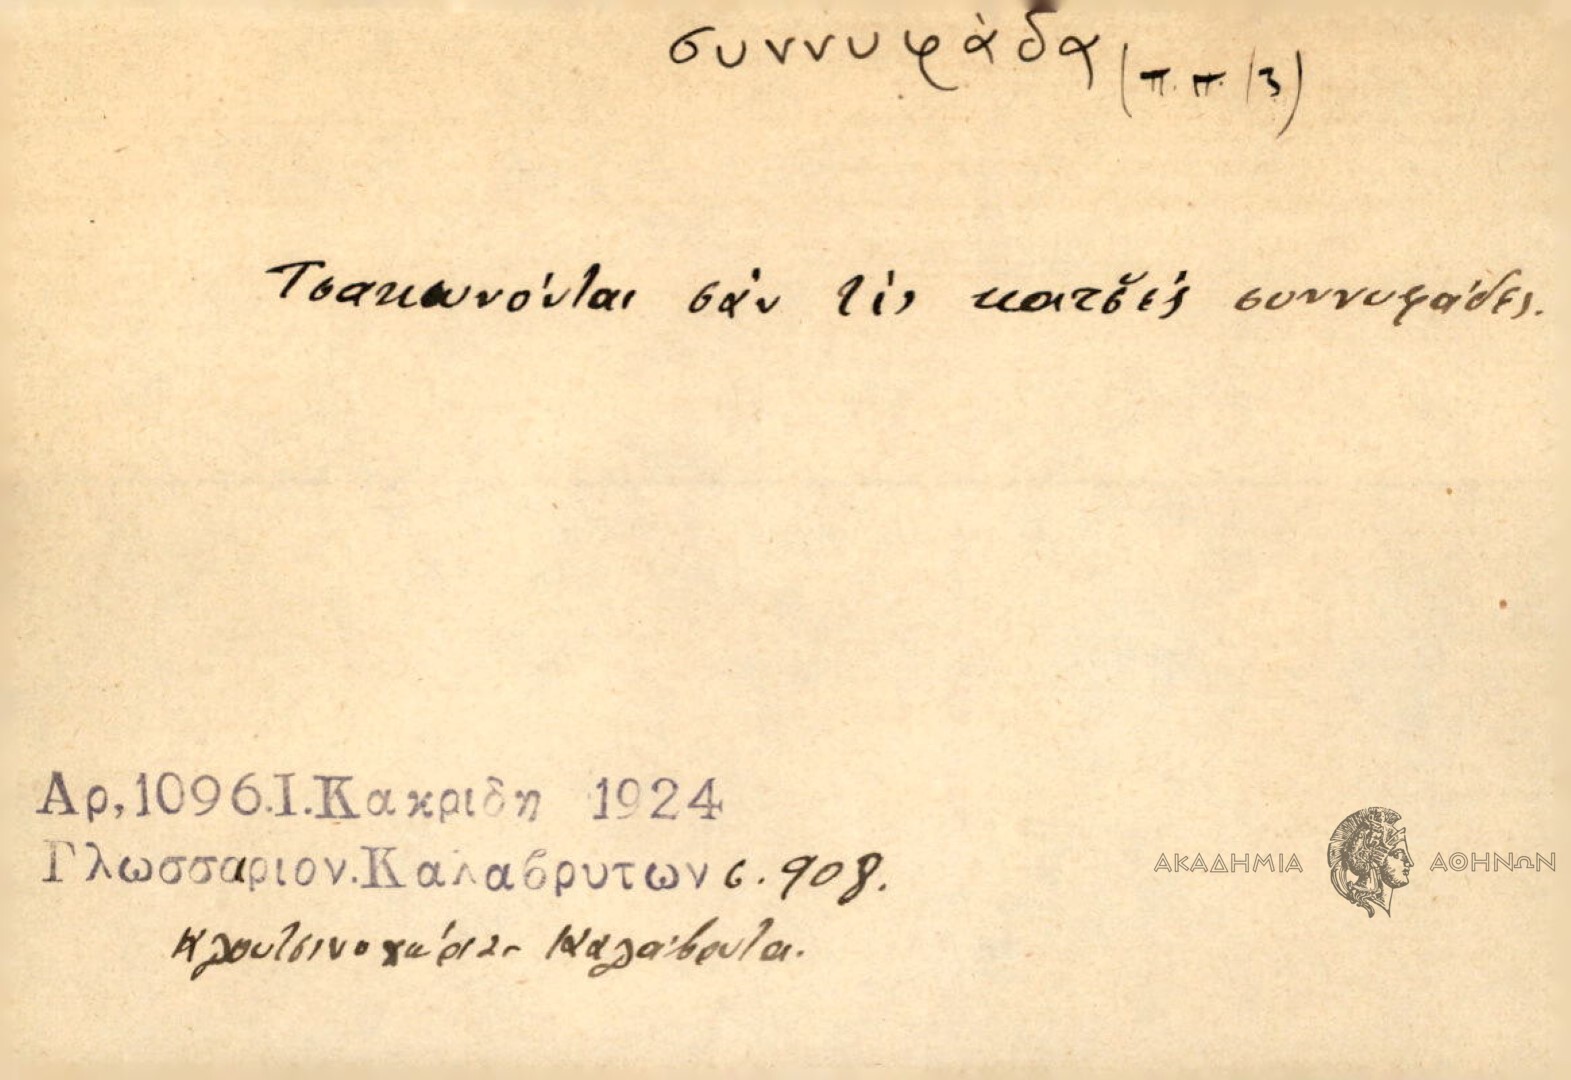 συννυφάδα (π.π. /3)
Τσακωνόνται σὰν τὶς κατσ̆ές συννυφάδες.
Αρ,1096.Ι.Κακριδη 1924
Γλωσσαριον.Καλαβρυτων σ. 908.
Κλουτσινοχώρια- Καλάβρυτα.
ΑΚΑΔΗΜΙΑ ΑΘΗΝΩΝ